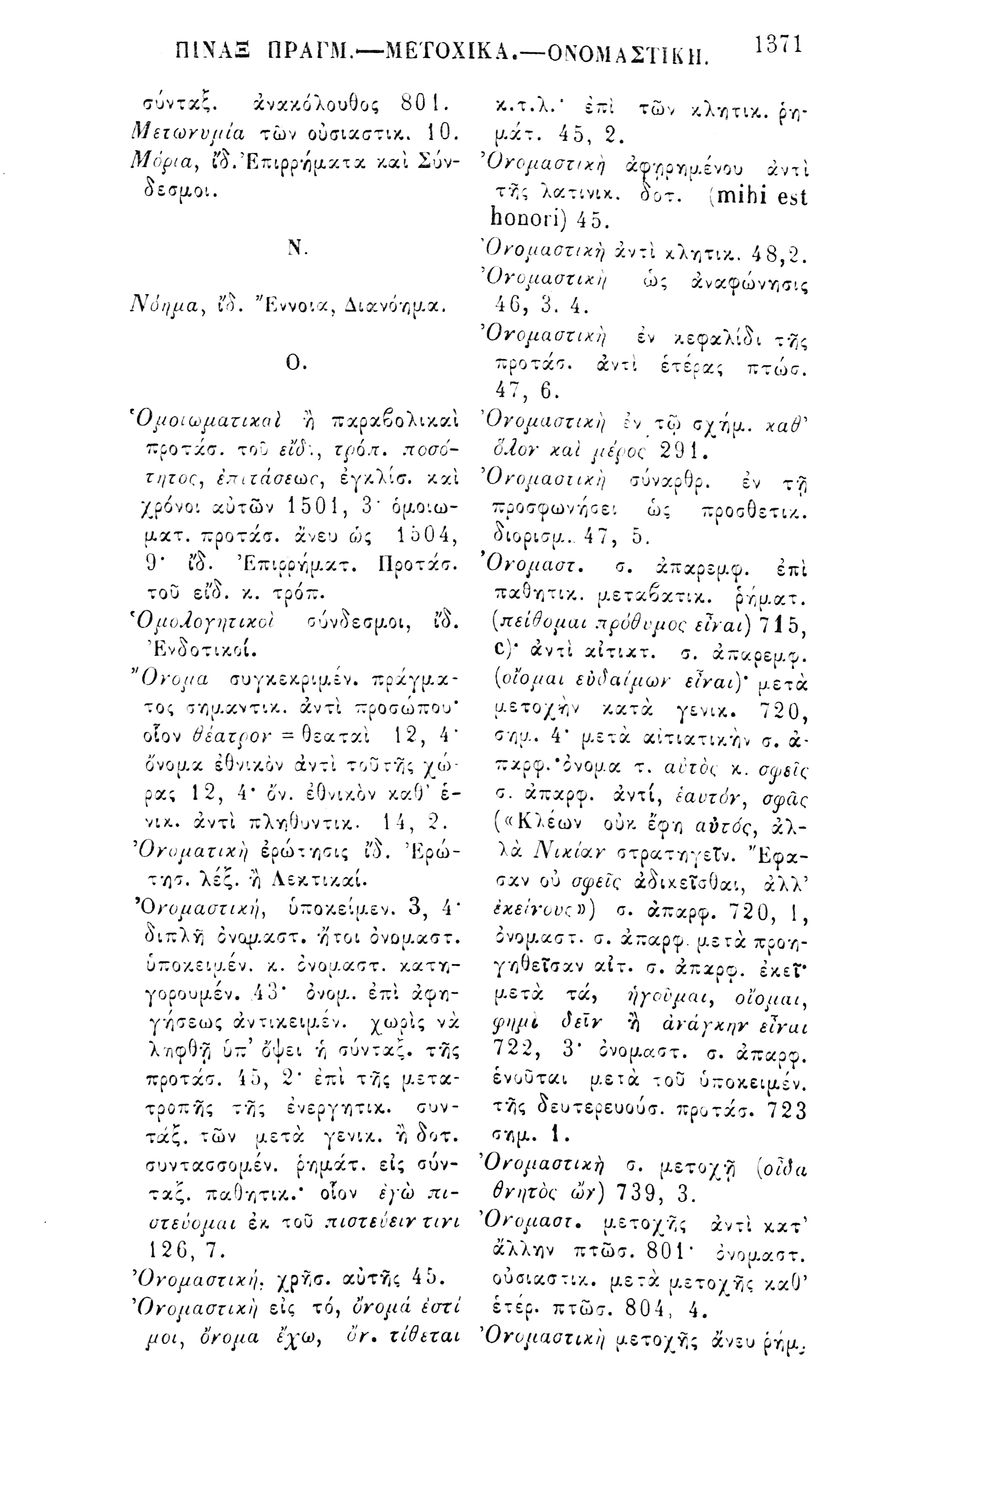 ΠΙΝΑΞ ΠΡΑΓΜ.—ΜΕΤΟΧΙΚΑ.—ΟΝΟΜΑΣΤΙΚΗ. 1371
σύνταξ. ἀνακόλουθος 801.
Μετωνυμία τῶν οὐσιαστικ. 10.
Μόρια, ἴδ. Ἐπιρρήματα καὶ Σύν-
δεσμοι.
Ν.
Νόημα, ἴδ. Ἔννοια, Διανόημα.
Ο.
Ὁμοιωματικαὶ ἢ παραβολικαὶ
προτάσ. τοῦ εἴδ., τρόπ. ποσό-
τητος, ἐπιτάσεως, ἐγκλίσ. καὶ
χρόνοι αὐτῶν 1501, 3· ὁμοιω-
ματ. προτάσ. ἄνευ ὡς 1504,
9· ἴδ. Ἐπιρρήματ. Προτάσ.
τοῦ εἴδ. κ. τρόπ.
Ὁμολογητικοὶ σύνδεσμοι, ἴδ.
Ἐνδοτικοί.
Ὄνομα συγκεκριμέν. πράγμα-
τος σημαντικ. ἀντὶ προσώπου·
οἷον θέατρον = θεαταὶ 12, 4·
ὄνομα ἐθνικὸν ἀντὶ τοῦ τῆς χώ-
ρας 12, 4· ὄν. ἐθνικὸν καθ' ἑ-
νικ. ἀντὶ πληθυντικ. 14, 2.
Ὀνοματικὴ ἐρώτησις ἴδ. Ἐρώ-
τησ. λέξ. ἢ Λεκτικαί.
Ὀνομαστική, ὑποκείμεν. 3, 4·
διπλῆ ὀνομαστ. ἤτοι ὀνομαστ.
ὑποκειμέν. κ. ὀνομαστ. κατη-
γορουμέν. 43· ὀνομ. ἐπὶ ἀφη-
γήσεως ἀντικειμέν. χωρὶς νὰ
ληφθῇ ὑπ' ὄψει ἡ σύνταξ. τῆς
προτάσ. 45, 2· ἐπὶ τῆς μετα-
τροπῆς τῆς ἐνεργητικ. συν-
τάξ. τῶν μετὰ γενικ. ἢ δοτ.
συντασσομέν. ῥημάτ. εἰς σύν-
ταξ. παθητικ.· οἷον ἐγὼ πι-
στεύομαι ἐκ τοῦ πιστεύειν τινι
126, 7.
Ὀνομαστική, χρῆσ. αὐτῆς 45.
Ὀνομαστικὴ εἰς τό, ὄνομά ἐστί
μοι, ὄνομα ἔχω, ὄν. τίθεται
κ.τ.λ.· ἐπὶ τῶν κλητικ. ῥη-
μάτ. 45, 2.
Ὀνομαστικὴ ἀφῃρημένου ἀντὶ
τῆς λατινικ. δοτ. (mihi est
honori) 45.
Ὀνομαστικὴ ἀντὶ κλητικ. 48,2.
Ὀνομαστικὴ ὡς ἀναφώνησις
46, 3. 4.
Ὀνομαστικὴ ἐν κεφαλίδι τῆς
προτάσ. ἀντὶ ἑτέρας πτώσ.
47, 6.
Ὀνομαστικὴ ἐν τῷ σχήμ. καθ'
ὅλον καὶ μέρος 291.
Ὀνομαστικὴ σύναρθρ. ἐν τῇ
προσφωνήσει ὡς προσθετικ.
διορισμ. 47, 5.
Ὀνομαστ. σ. ἀπαρεμφ. ἐπὶ
παθητικ. μεταβατικ. ῥήματ.
(πείθομαι πρόθυμος εἶναι) 715,
c)· ἀντὶ αἰτιατ. σ. ἀπαρεμφ.
(οἴομαι εὐδαίμων εἶναι)· μετὰ
μετοχὴν κατὰ γενικ. 720,
σημ. 4· μετὰ αἰτιατικὴν σ. ἀ-
παρφ.· ὄνομα τ. αὐτὸς κ. σφεῖς
σ. ἀπαρφ. ἀντί, ἑαυτόν, σφᾶς
(«Κλέων οὐκ ἔφη αὐτός, ἀλ-
λὰ Νικίαν στρατηγεῖν. Ἔφα-
σαν οὐ σφεῖς ἀδικεῖσθαι, ἀλλ'
ἐκείνους») σ. ἀπαρφ. 720, 1,
ὀνομαστ. σ. ἀπαρφ. μετὰ προη-
γηθεῖσαν αἰτ. σ. ἀπαρφ. ἐκεῖ·
μετὰ τά, ἡγοῦμαι, οἴομαι,
φημὶ δεῖν ἢ ἀνάγκην εἶναι
722, 3· ὀνομαστ. σ. ἀπαρφ.
ἑνοῦται μετὰ τοῦ ὑποκειμέν.
τῆς δευτερευούσ. προτάσ. 723
σημ. 1.
Ὀνομαστικὴ σ. μετοχῇ (οἶδα
θνητὸς ὤν) 739, 3.
Ὀνομαστ. μετοχῆς ἀντὶ κατ'
ἄλλην πτῶσ. 801· ὀνομαστ.
οὐσιαστικ. μετὰ μετοχῆς καθ'
ἑτέρ. πτῶσ. 804, 4.
Ὀνομαστικὴ μετοχῆς ἄνευ ῥήμ.